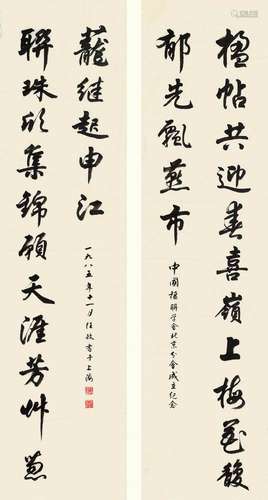 楹帖共迎春喜嶺上梅花馥
郁先飘燕市
中國楹聯学会北京分會成立纪念
聯珠欣集錦願天涯芳艸葱
蘢继起申江
一九八五年十一月任政書于上海